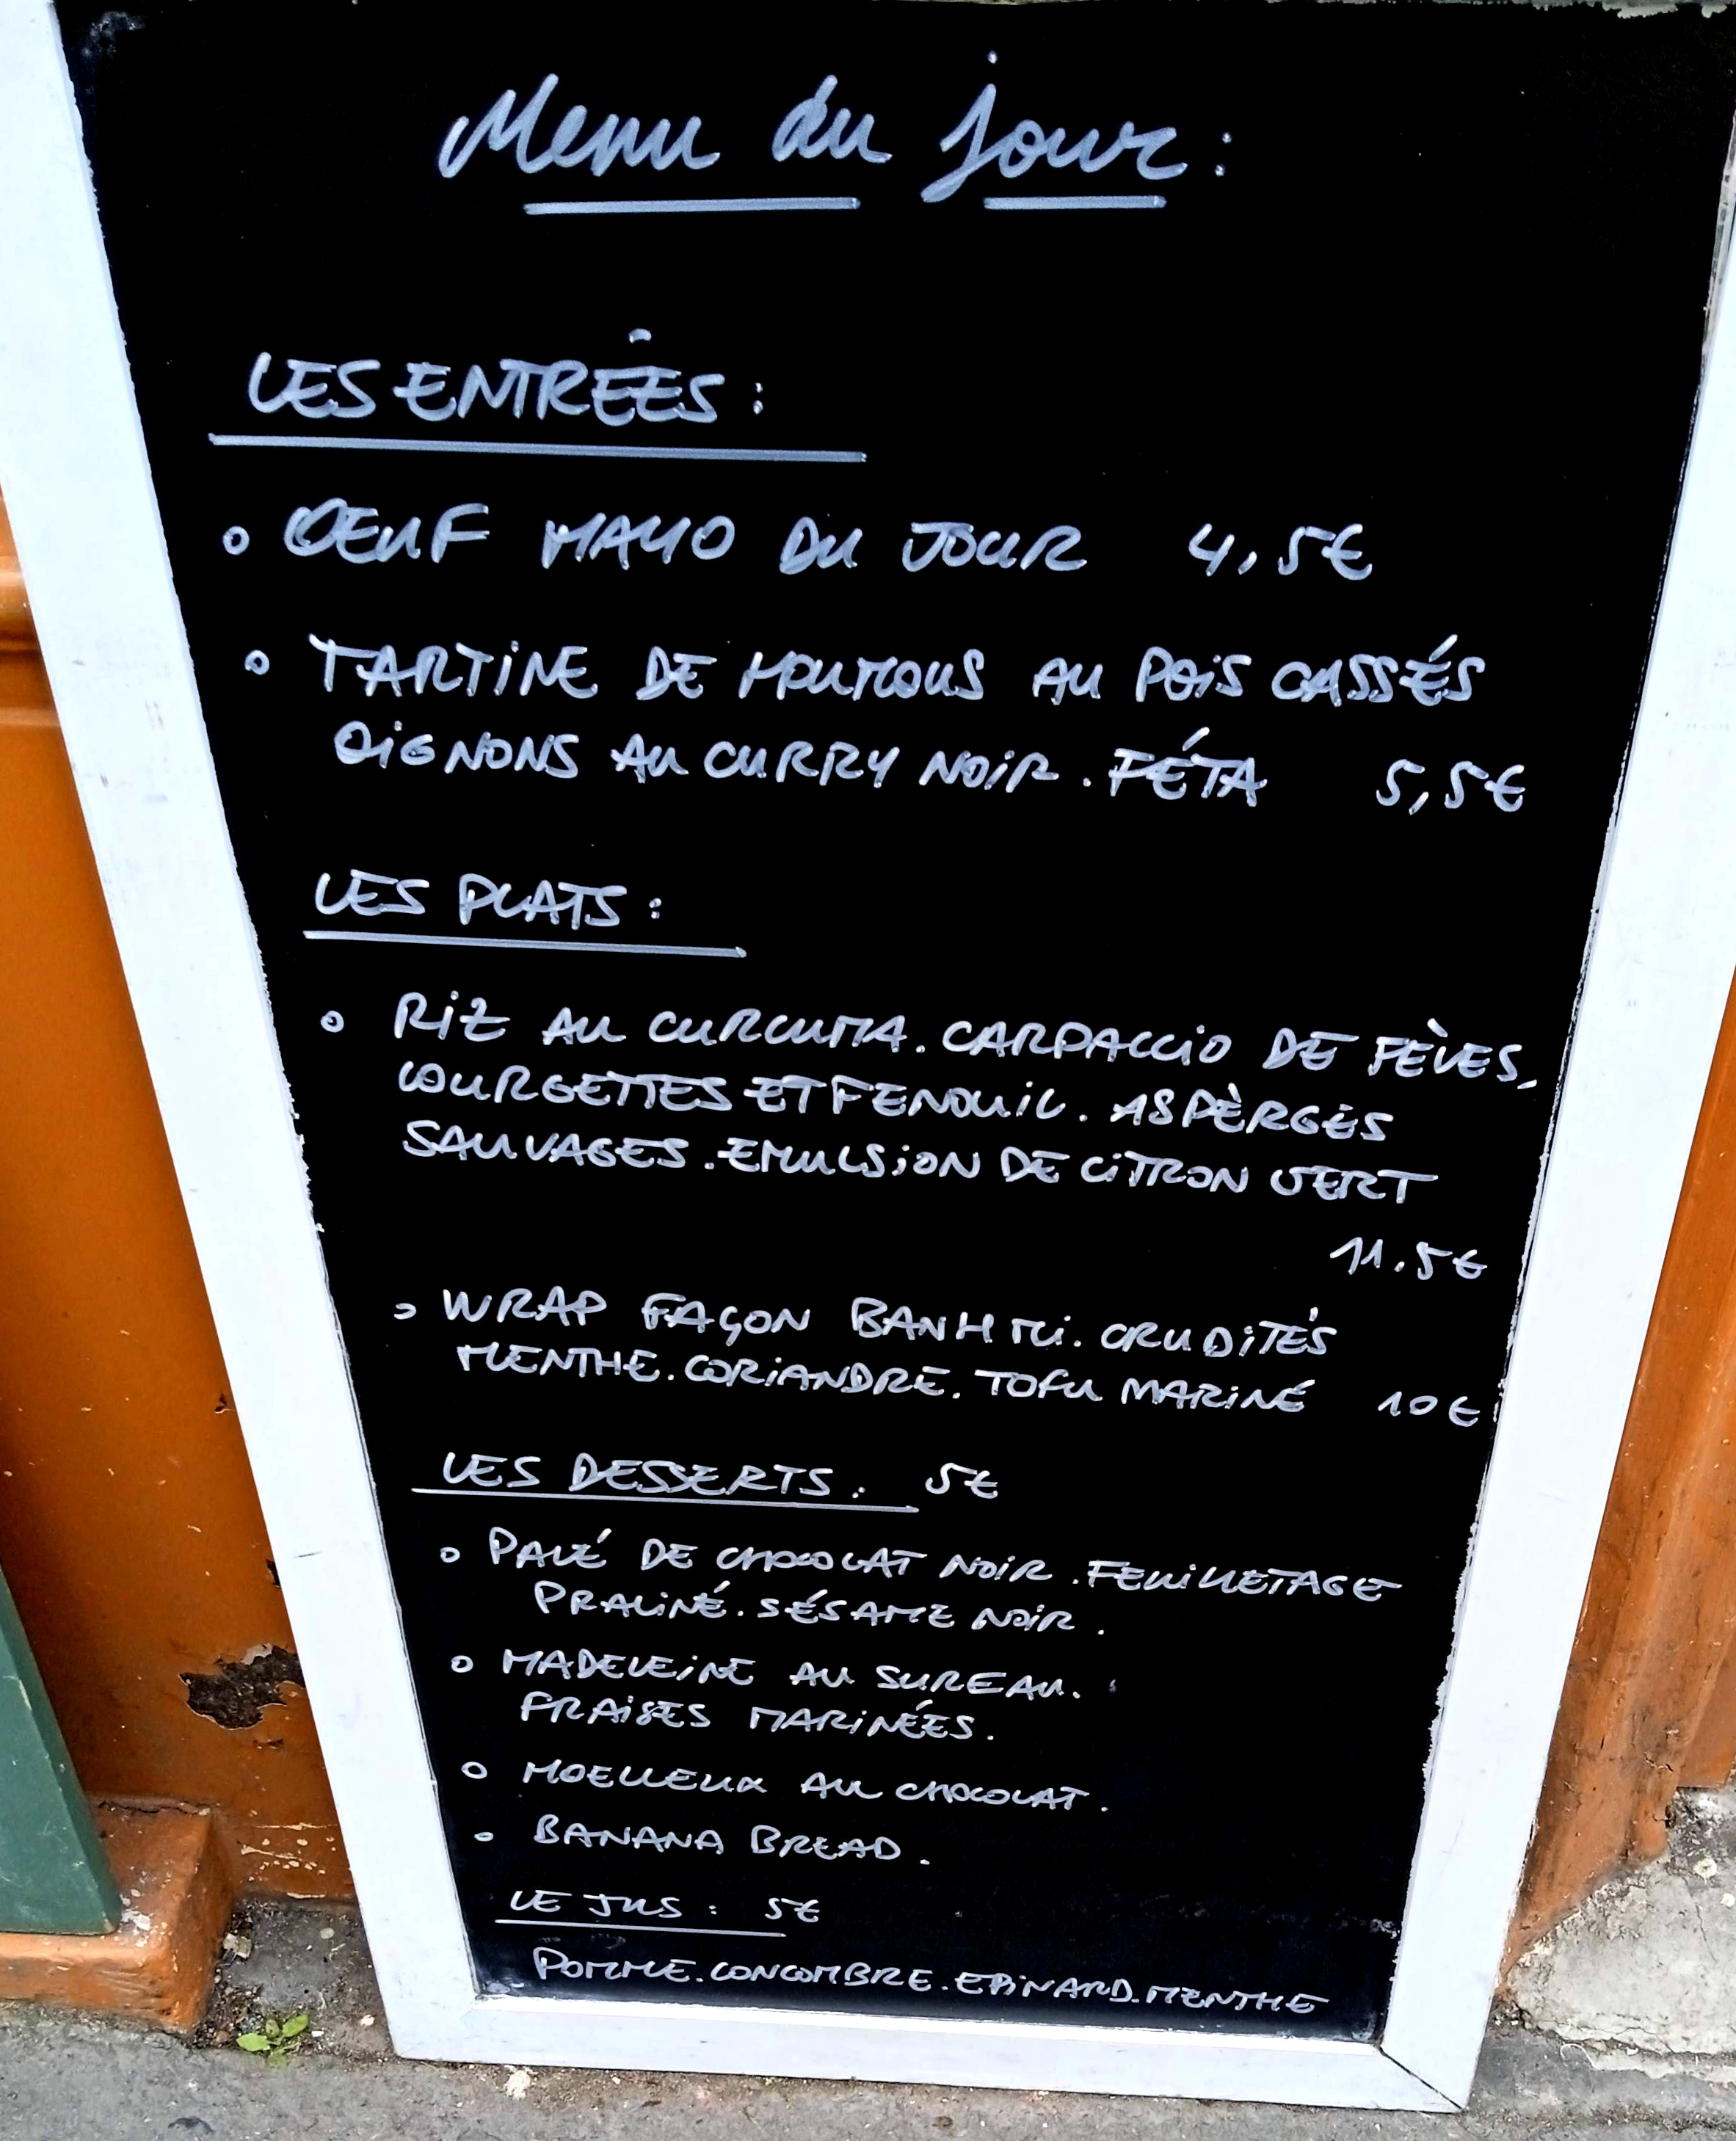 Menu du jour :
LES ENTRÉES :
OEUF MAYO DU JOUR 4,5€
TARTINE DE HOUMOUS AU POIS CASSÉS
OIGNONS AU CURRY NOIR . FÉTA 5,5€
LES PLATS :
RIZ AU CURCUMA. CARPACCIO DE FÈVES,
COURGETTES ET FENOUIL. ASPÈRGES
SAUVAGES. EMULSION DE CITRON VERT
11.5€
WRAP FAÇON BANH MI. CRUDITÉS
MENTHE. CORIANDRE. TOFU MARINÉ 10€
LES DESSERTS : 5€
PAVÉ DE CHOCOLAT NOIR . FEUILLETAGE
PRALINÉ. SÉSAME NOIR .
MADELEINE AU SUREAU.
FRAISES MARINÉES.
MOELLEUX AU CHOCOLAT.
BANANA BREAD .
LE JUS : 5€
POMME. CONCOMBRE. EPINARD. MENTHE